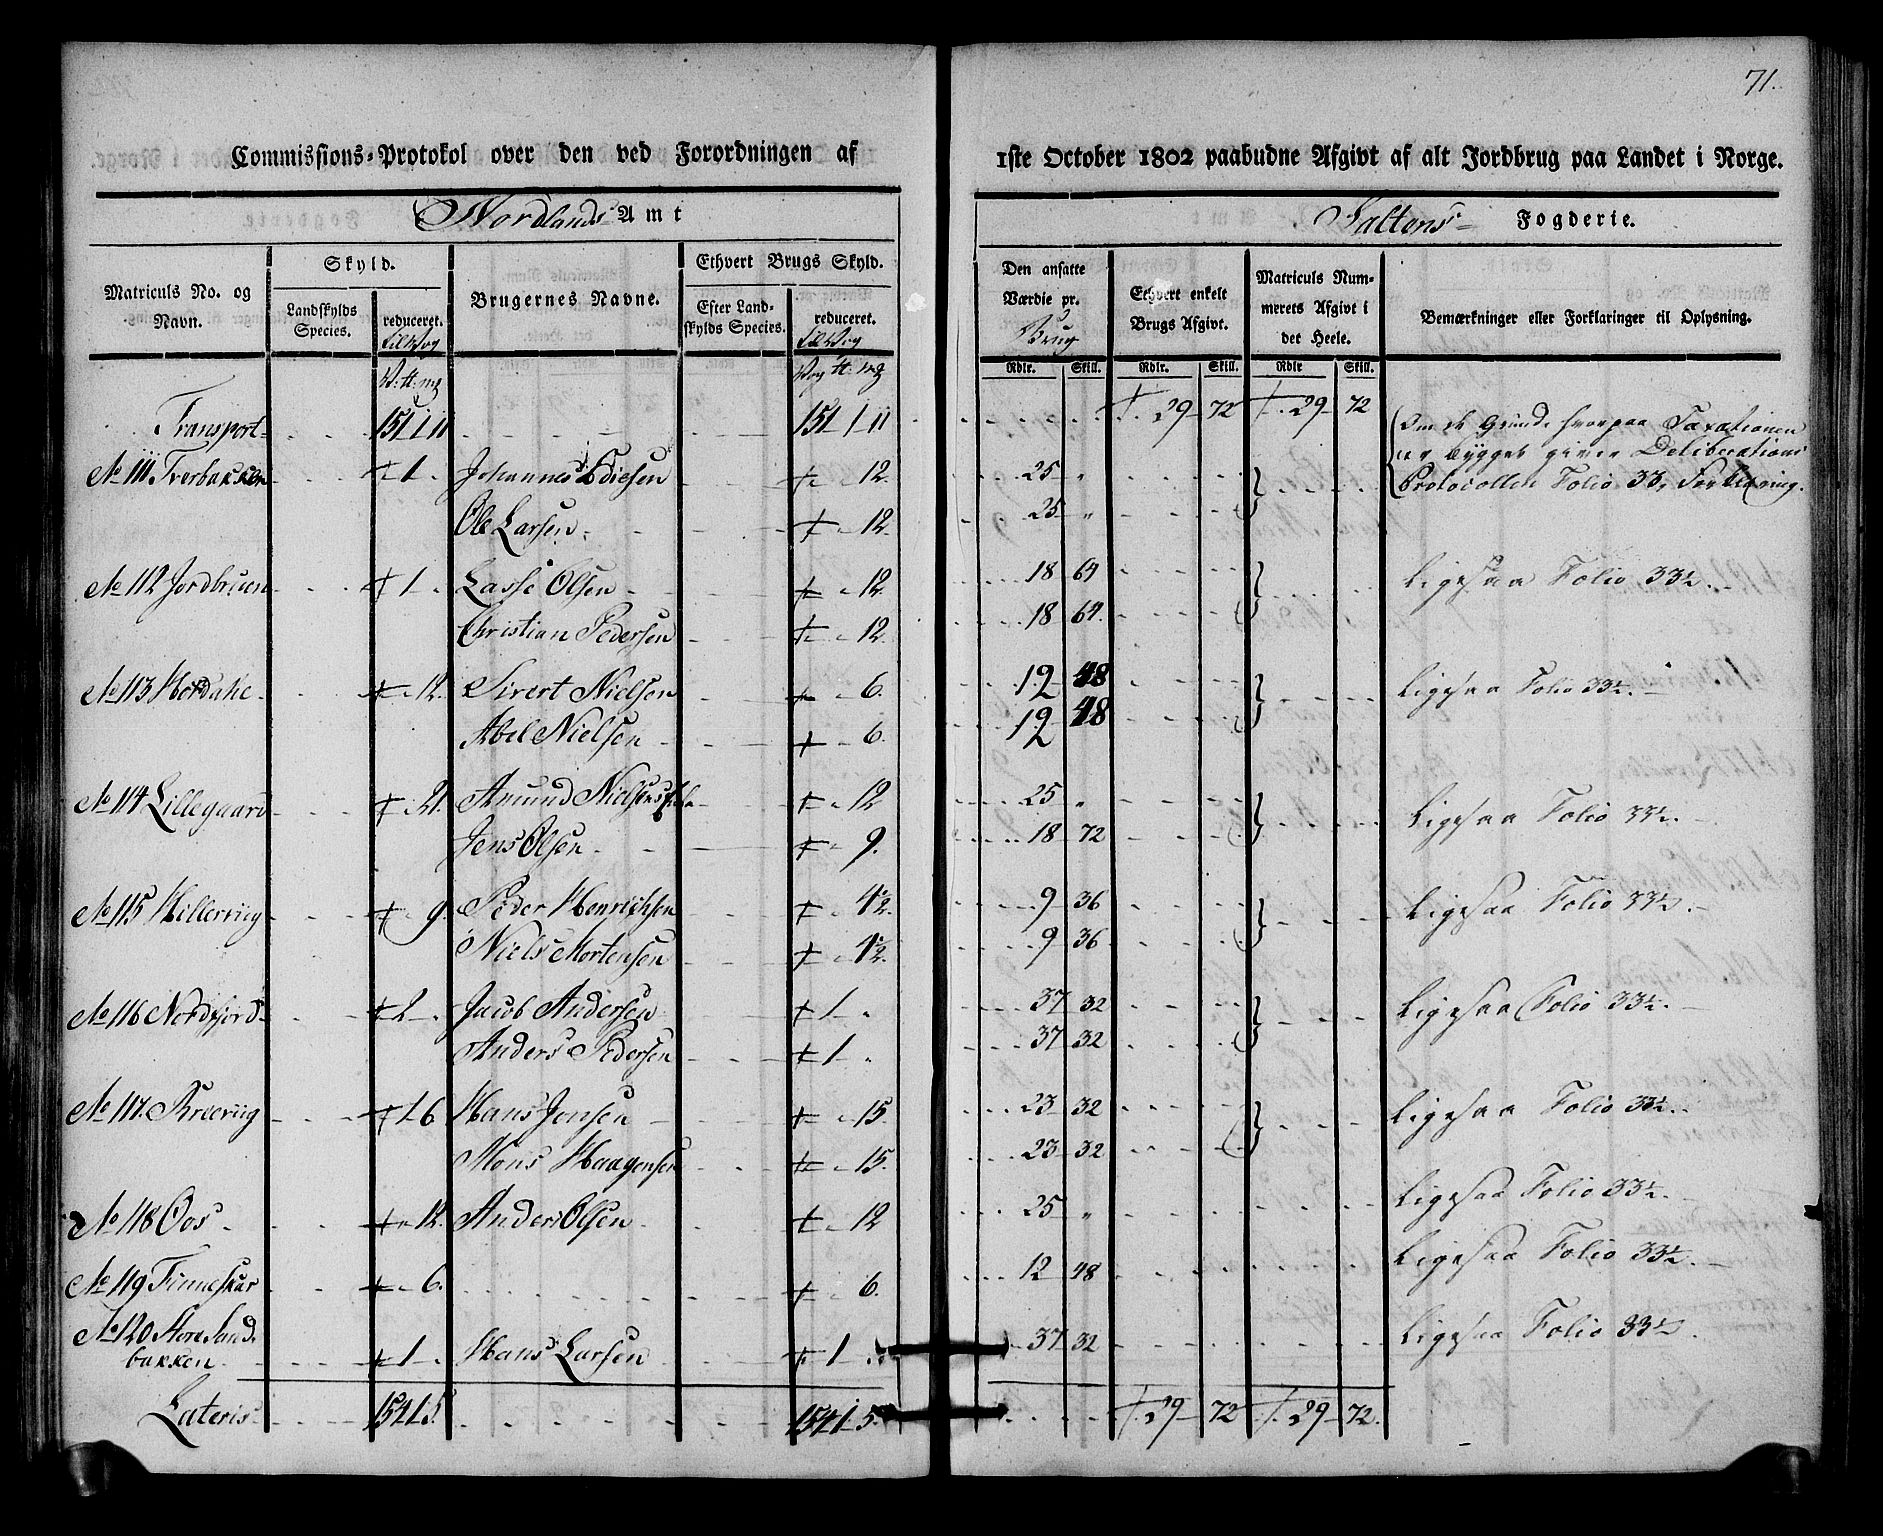 71.
Commissions-Protokol over den ved Forordningen af 1ste October 1802 paabudne Afgivt af alt Jordbrug paa Landet i Norge.
Nordlands Amt Saltens Fogderie.
Matriculs No. og Navn.
Skyld.
Landskylds Species.
reduceret.
Brugernes Navne.
Ethvert Brugs Skyld.
Efter Landskylds Species.
reduceret.
Den ansatte Værdie pr. Brug
Ethvert enkelt Brugs Afgivt.
Matriculs Nummerets Afgivt i det Heele.
Bemærkninger eller Forklaringer til Oplysning.
Rdlr. Skill. Rdlr. Skill. Rdlr Skill.
Transport 151 1 11 151 1 11 29 72 29 72
Om de Grunde hvorpaa Taxationen
er bygget giver Deliberations
Protocollen Folio 33, Forklaring.
No 111 Tverbakken 1 Johannes 12. 25 "
Ole Larsen 12. 25 "
No 112 Jordbruen 1 Lasse Olsen 12. 18 64 Ligesaa Folio 33½.
Christian Pedersen 12. 18 64.
No 113 12. Sivert Nielsen 6. 12 48 Ligesaa Folio 33½.
Abel Nielsen 6. 12 48
No 114 Lillegaard 21. Amund Nielsens 12 25 " Ligesaa Folio 33½.
Jens Olsen 9. 18 72
No 115 Hillerviig 9. Peder Henrichsen 4½. 9 36 Ligesaa Folio 33½.
Niels Mortensen 4½. 9 36
No 116 Nordfjord 2 Jacob Andersen 1 37 32 Ligesaa Folio 33½.
Anders Pedersen 1 37 32
No 117. 1 6 Hans Jensen 15. 23 32 Ligesaa Folio 33½.
Mons Haagensen 15. 23 32
No 118 Oos 12. Anders Olsen 12 25 " Ligesaa Folio 33½.
No 119 Finneskar 6. 6. 12 48 Ligesaa Folio 33½.
No 120 Store Sand-
bakken 1 Hans Larsen 1 37 32 Ligesaa Folio 33½.
Lateris 154 1 5. 154 1 5. 29 72 29 72.